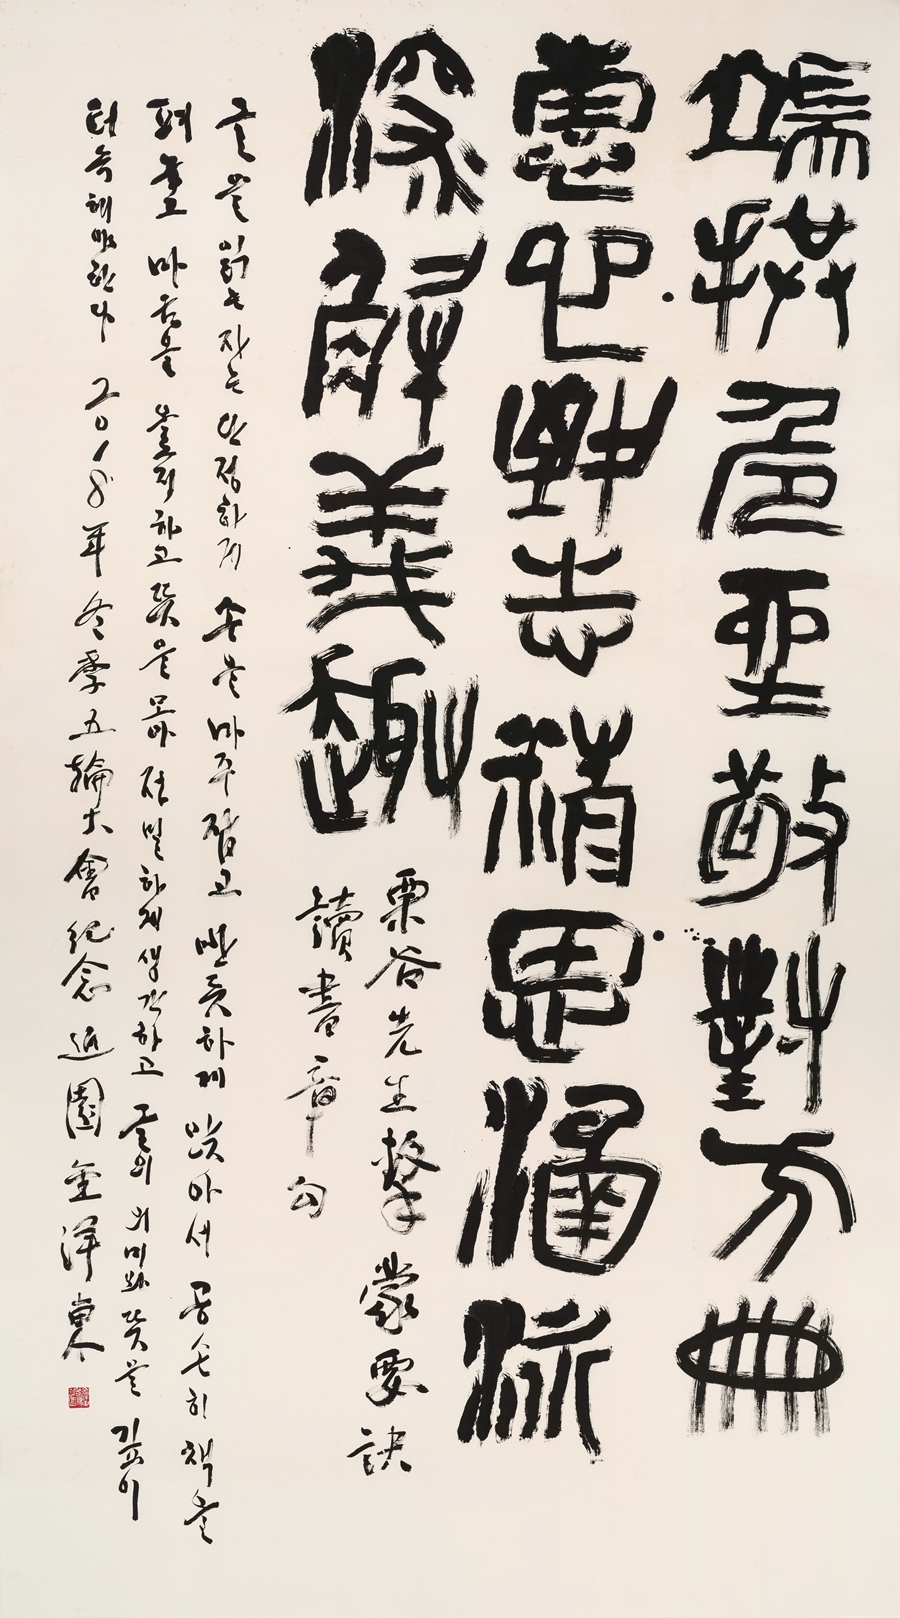 端拱危坐敬對方冊
專心致志精思涵泳
深解義趣
栗谷先生擊蒙要訣
讀書章句
글을 읽는 자는 단정하게 손을 마주잡고 반듯하게 앉아서 공손히 책을
펴놓고 마음을 오로지하고 뜻을 모아 정밀하게 생각하고 글의 의미와 뜻을 깊이
터득해야한다 二0一8年 冬季五輪大會紀念 近園 金洋東